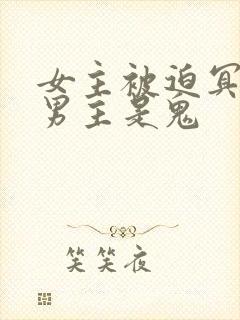 女主被迫冥
男主是鬼
笑笑夜